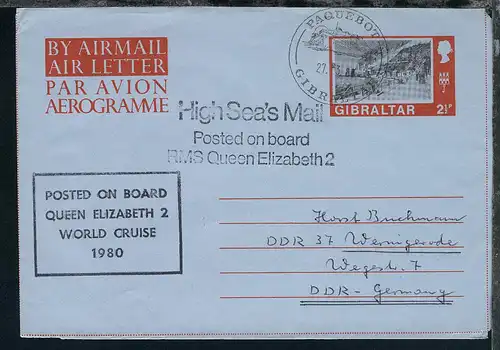 BY AIRMAIL
AIR LETTER
PAR AVION
AEROGRAMME
PAQUEBOT
27.
GIBRALTAR
GIBRALTAR 2½p
High Sea's Mail
Posted on board
RMS Queen Elizabeth 2
POSTED ON BOARD
QUEEN ELIZABETH 2
WORLD CRUISE
1980
Horst Buchmann
DDR 37 Wernigerode
Wegest. 7
DDR-Germany